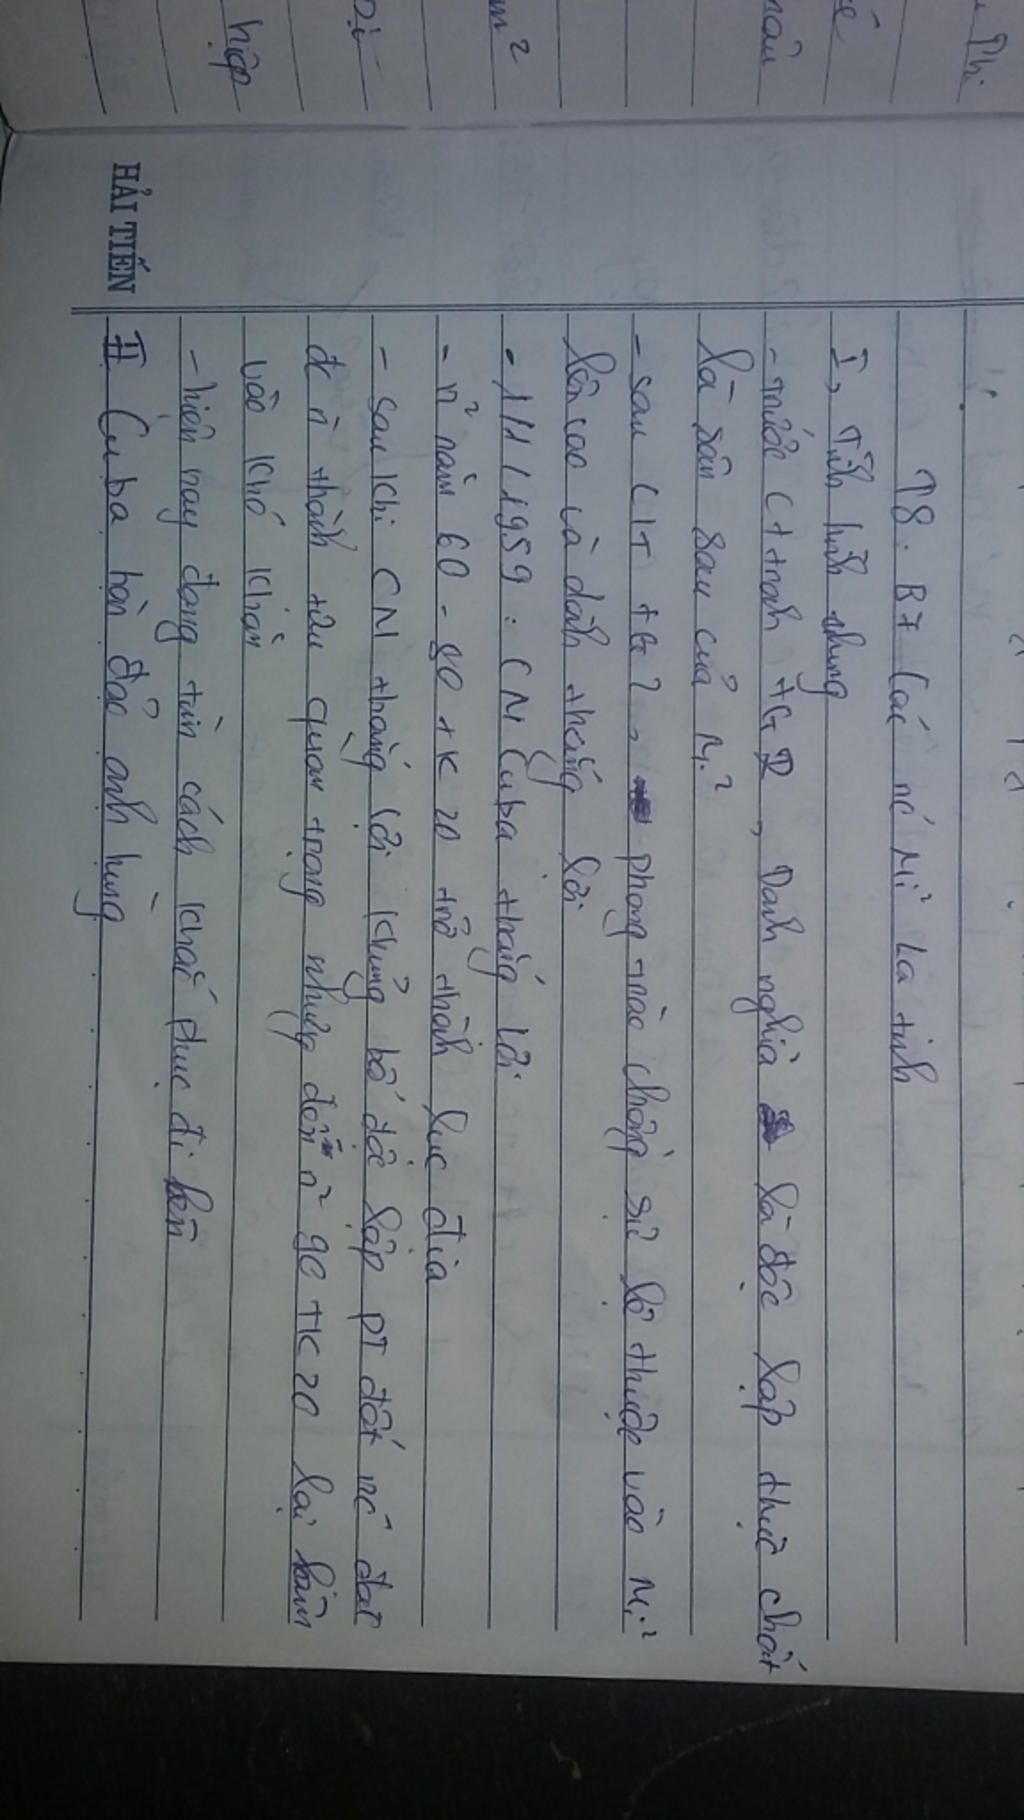 Phi
ế
hiệp
HẢI TIẾN
T8: B7 Các nc Mĩ La tinh
I, Tình hình chung
- trước Ct tranh tG 2, Danh nghĩa là độc lập thực chất
là sân sau của Mĩ
- sau CtT tG 2, phong trào chống sự lệ thuộc vào Mĩ
lên cao và dành thắng lợi
- 1/1/1959: CN Cuba thắng lợi
- n² năm 60 - 80 tK 20 trở thành lục địa
- sau khi CN thắng lợi khủng bố độc lập PT đất nc đạt
đc n thành tựu quan trọng nhưng đến n² 90 tK 20 lại lâm
vào khó khăn
- hiện nay đang tìm cách khắc phục đi lên
II Cuba hòn đảo anh hùng